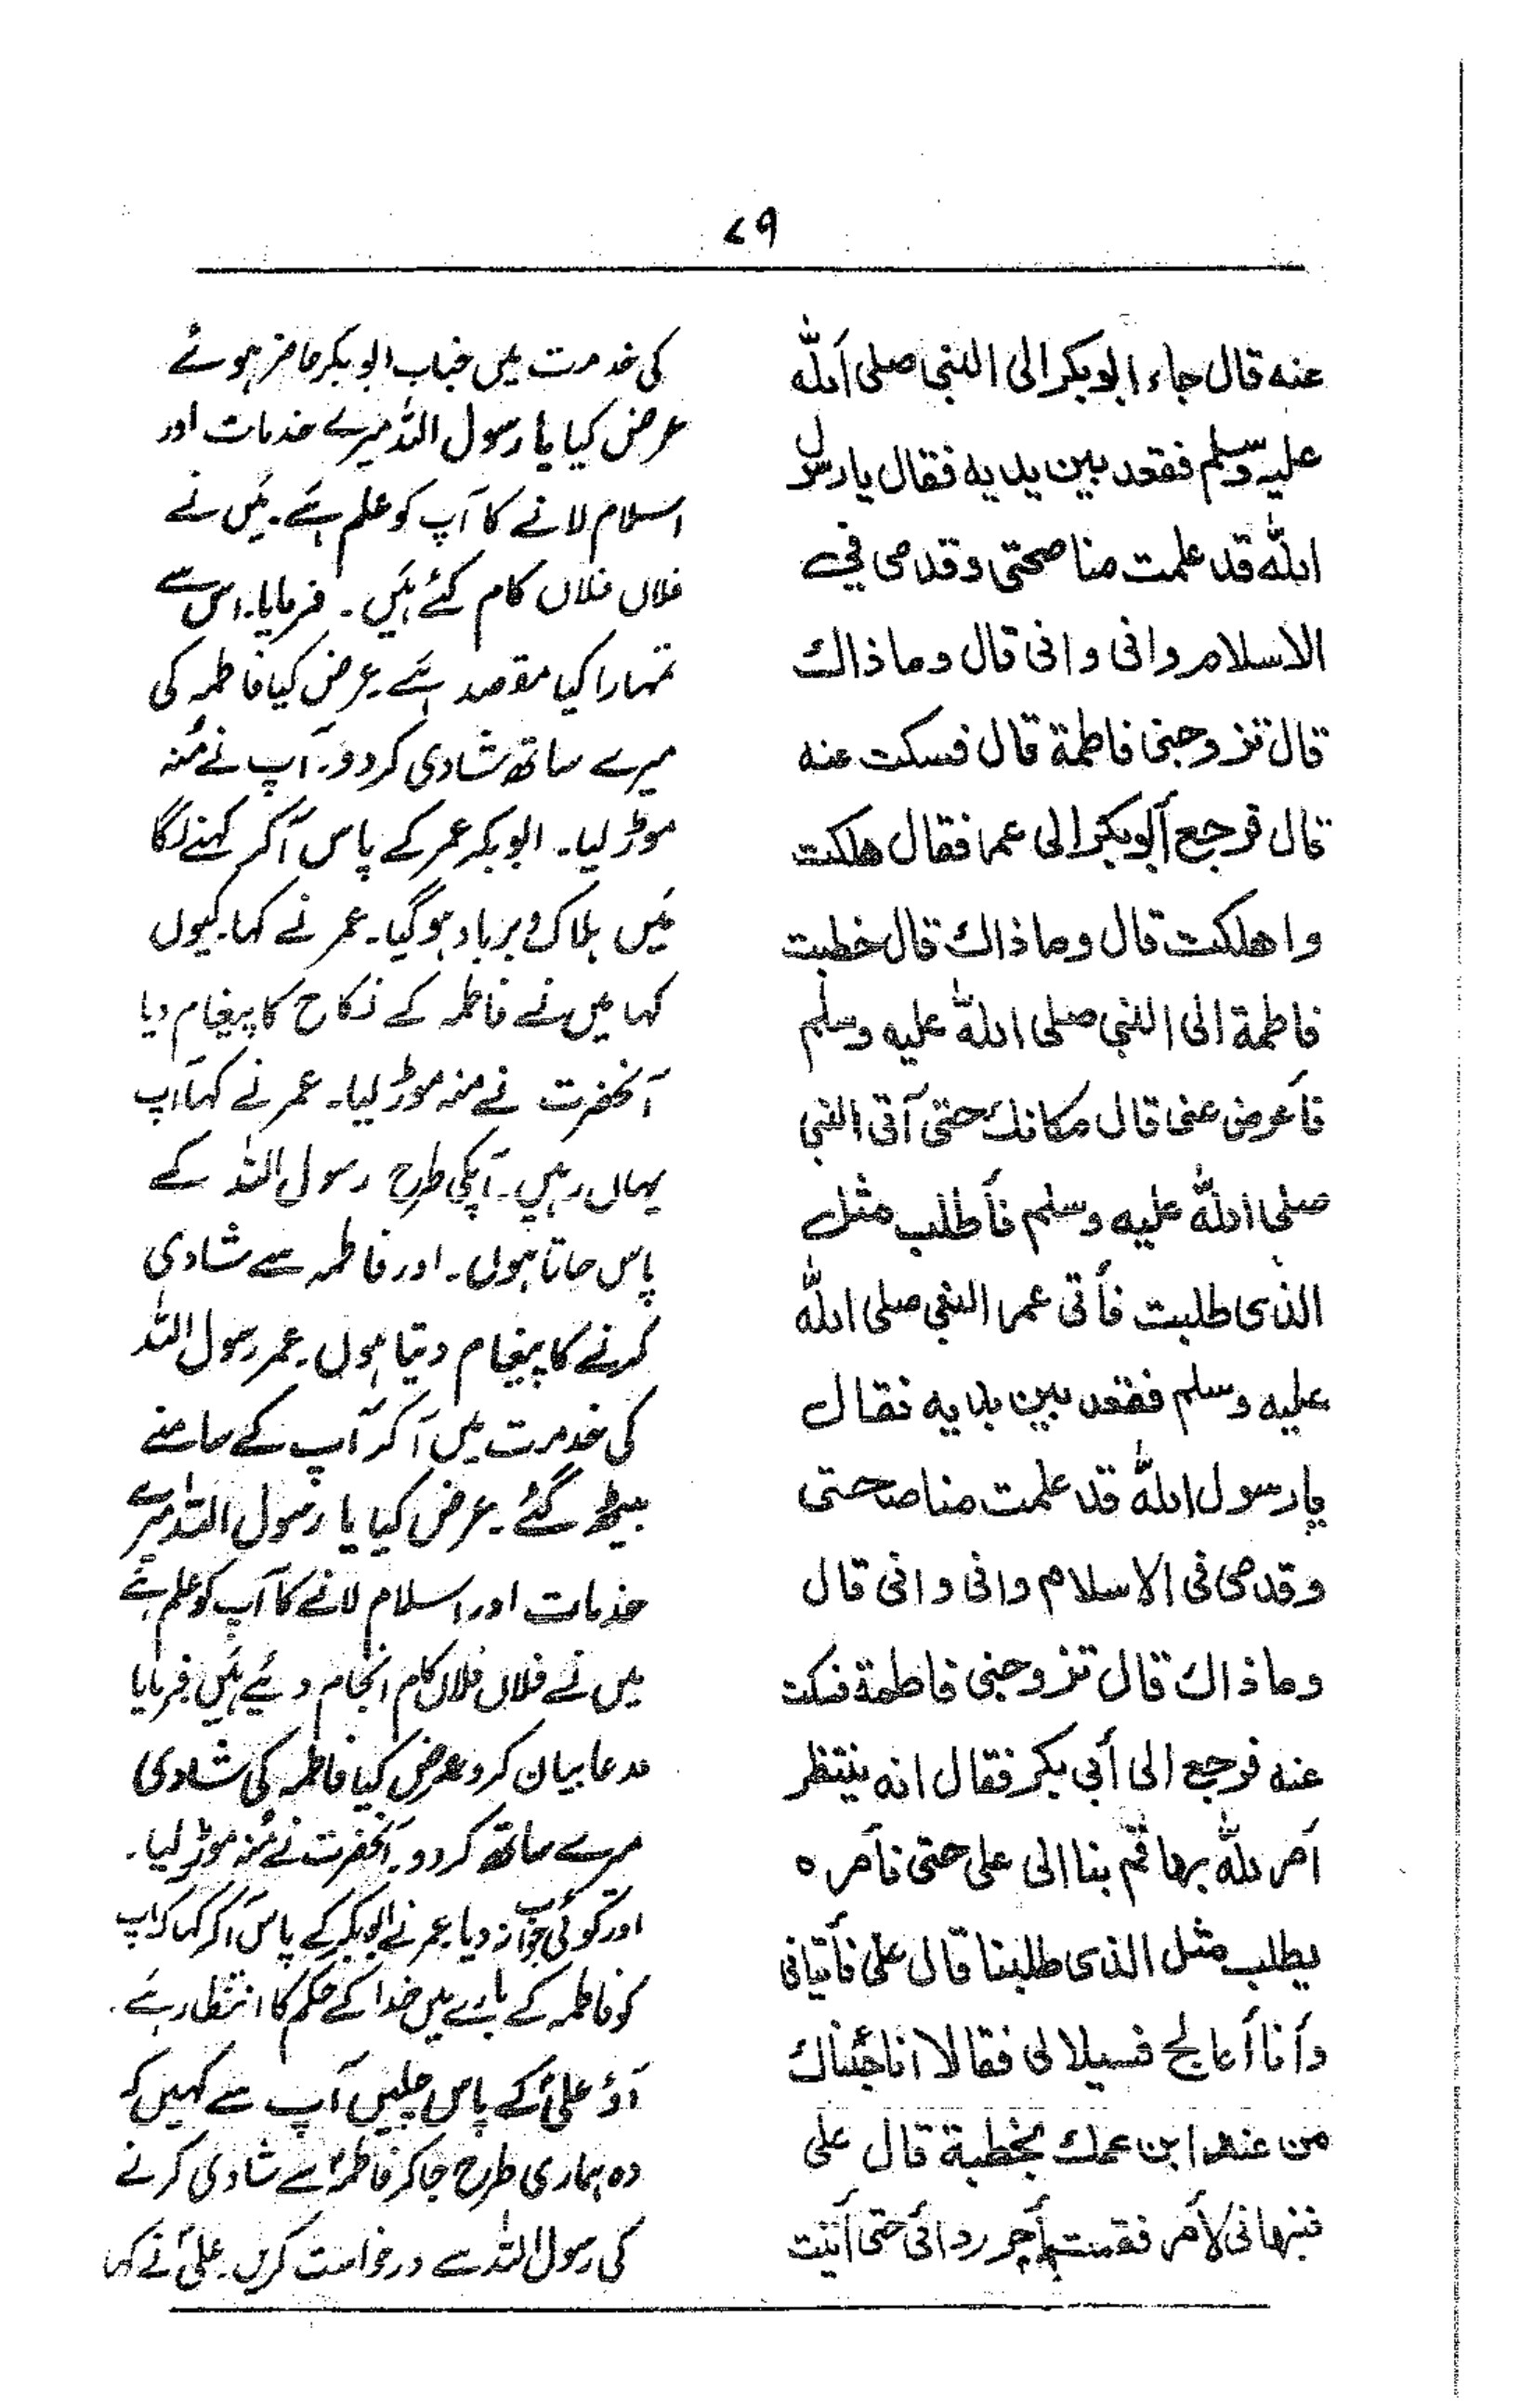 ۷۹
عنه قال جاء ابوبكر الى النبي صلى الله
عليه وسلم فقعد بين يديه فقال يا رسول
الله قد علمت مناصحتى وقدمى في
الاسلام وانى وانى قال وما ذاك
قال تزوجنى فاطمة قال فسكت عنه
قال فرجع أبوبكر الى عمر فقال هلكت
واهلكت قال وما ذاك قال خطبت
فاطمة الى النبي صلى الله عليه وسلم
فأعرض عنى قال مكانك حتى آتى النبي
صلى الله عليه وسلم فأطلب مثل
الذى طلبت فأتى عمر النبي صلى الله
عليه وسلم فقعد بين يديه فقال
يا رسول الله قد علمت مناصحتى
وقدمى فى الاسلام وانى وانى قال
وما ذاك قال تزوجنى فاطمة فسكت
عنه فرجع الى أبي بكر فقال انه ينتظر
أمر الله بها قم بنا الى على حتى نأمره
يطلب مثل الذى طلبنا قال على فأتيانى
وأنا أعالج فسيلا لى فقالا انا جئناك
من عند ابن عمك بخطبة قال على
فنبهانى لأمر فقمت أجر ردائى حتى أتيت
کی خدمت میں جناب ابوبکر حاضر ہوئے
عرض کیا یا رسول اللہ میرے خدمات اور
اسلام لانے کا آپ کو علم ہے۔ میں نے
فلاں فلاں کام کئے ہیں۔ فرمایا۔ اس سے
تمہارا کیا مقصد ہے۔ عرض کیا فاطمہ کی
میرے ساتھ شادی کر دو۔ آپ نے مُنہ
موڑ لیا۔ ابوبکر عمر کے پاس آکر کہنے لگا
میں ہلاک و برباد ہوگیا۔ عمر نے کہا۔ کیوں
کہا میں نے فاطمہ کے نکاح کا پیغام دیا
آنحضرت نے منہ موڑ لیا۔ عمر نے کہا آپ
یہاں رہیں۔ آپکی طرح رسول اللہ کے
پاس جاتا ہوں۔ اور فاطمہ سے شادی
کرنے کا پیغام دیتا ہوں۔ عمر رسول اللہ
کی خدمت میں آکر آپ کے سامنے
بیٹھ گئے۔ عرض کیا یا رسول اللہ میرے
خدمات اور اسلام لانے کا آپ کو علم ہے
میں نے فلاں فلاں کام انجام دیئے ہیں۔ فرمایا
مدعا بیان کرو عرض کیا فاطمہ کی شادی
میرے ساتھ کر دو۔ آنحضرت نے مُنہ موڑ لیا۔
اور کوئی جواب نہ دیا۔ عمر نے ابوبکر کے پاس آکر کہا کہ آپ
کو فاطمہ کے بارے میں خدا کے حکم کا انتظار ہے۔
آؤ علیؑ کے پاس چلیں آپ سے کہیں کہ
وہ ہماری طرح جا کر فاطمہؑ سے شادی کرنے
کی رسول اللہ سے درخواست کریں۔ علیؑ نے کہا